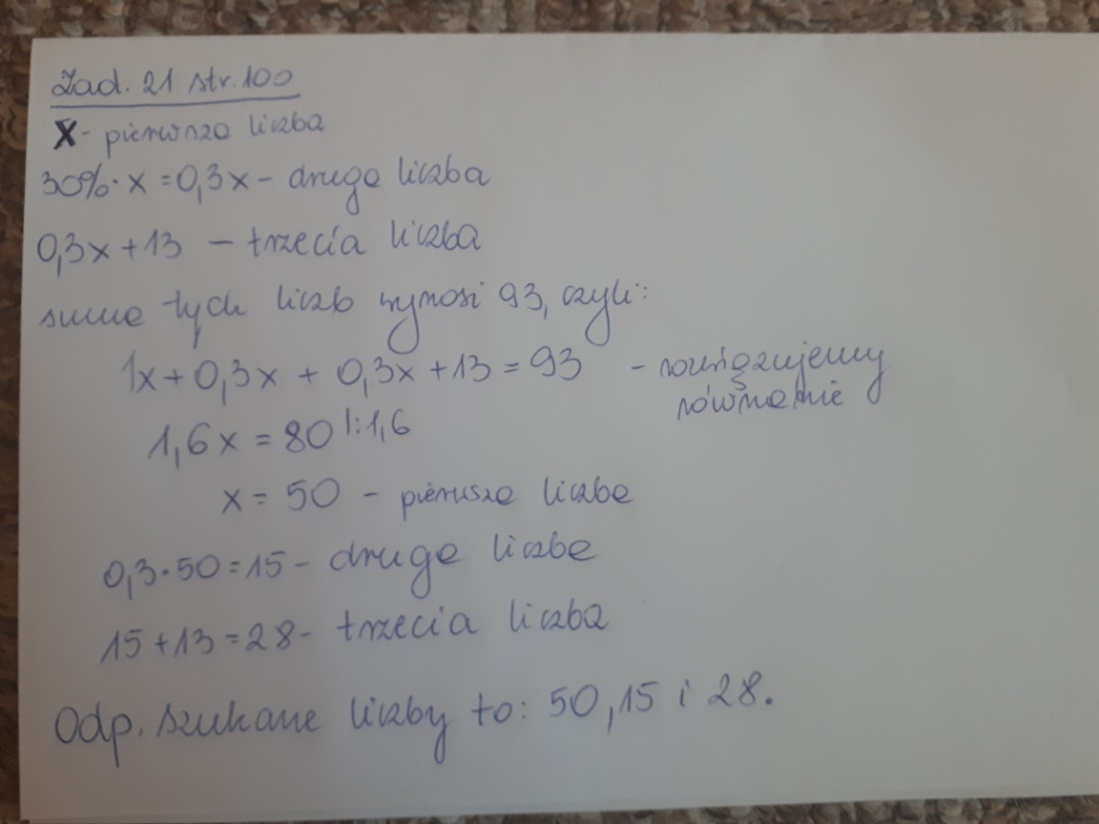 Zad. 21 str. 100
X - pierwsza liczba
30% · x = 0,3x - druga liczba
0,3x + 13 - trzecia liczba
suma tych liczb wynosi 93, czyli:
1x + 0,3x + 0,3x + 13 = 93 - rozwiązujemy
równanie
1,6x = 80 |:1,6
x = 50 - pierwsza liczba
0,3 · 50 = 15 - druga liczba
15 + 13 = 28 - trzecia liczba
Odp. szukane liczby to: 50, 15 i 28.